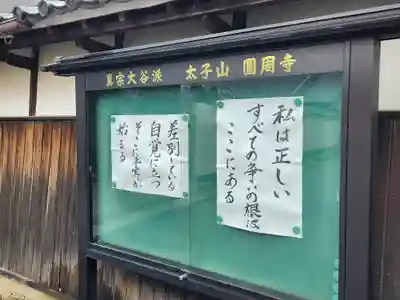 真宗大谷派 太子山 圓周寺
私は正しい
すべての争いの根は
ここにある
差別している
自覚に立つ
そこに未来が
始まる